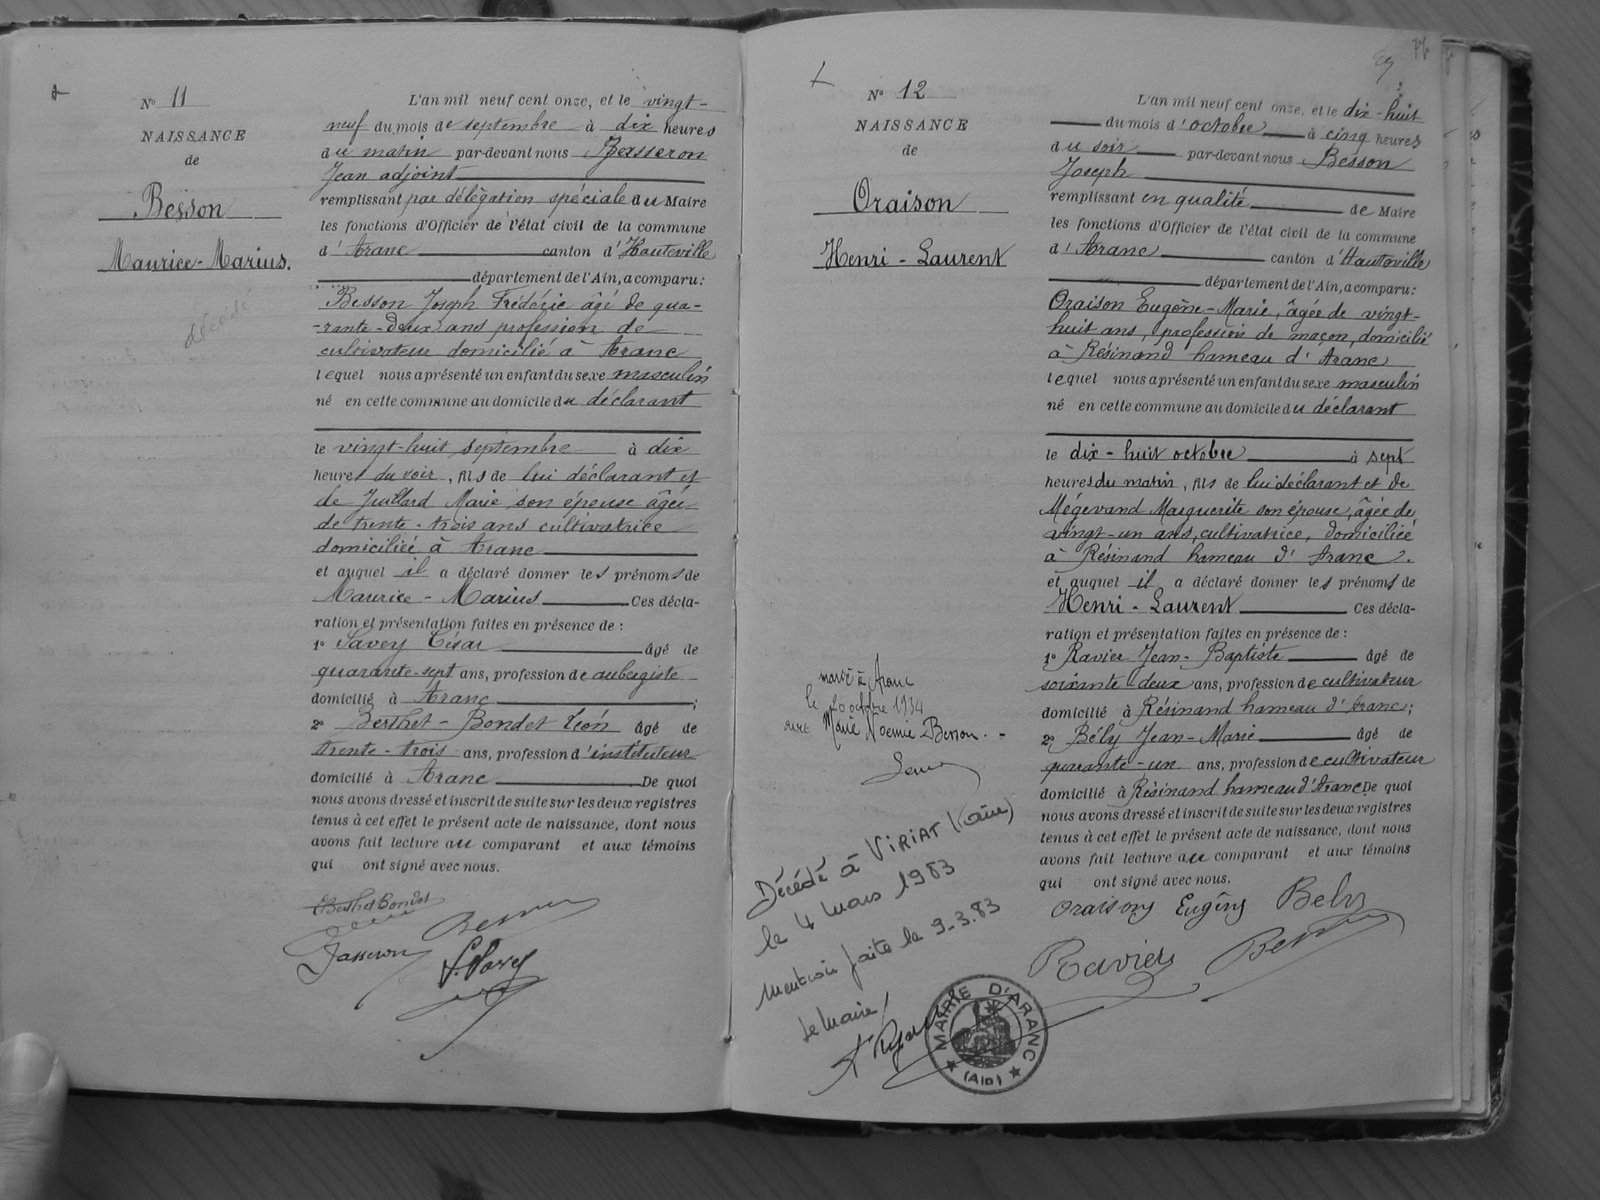 N° 11
NAISSANCE
de
Besson
Maurice-Marius.
décédé
L'an mil neuf cent onze, et le vingt-
neuf du mois de septembre à dix heures
du matin par-devant nous
Jean adjoint
remplissant par délégation spéciale du Maire
les fonctions d'Officier de l'état civil de la commune
d'Aranc canton d'Hauteville
département de l'Ain, a comparu:
Besson Joseph Frédéric âgé de qua-
-rante-deux ans profession de
cultivateur domicilié à Aranc
lequel nous a présenté un enfant du sexe masculin
né en cette commune au domicile du déclarant
le vingt-huit septembre à dix
heures du soir, fils de lui déclarant et
de Juillard Marie son épouse âgée
de trente-trois ans cultivatrice
domiciliée à Aranc
et auquel il a déclaré donner les prénoms de
Maurice-Marius Ces décla-
ration et présentation faites en présence de :
1° Savey César âgé de
quarante-sept ans, profession de aubergiste
domicilié à Aranc ;
2° Berthet-Bondet Léon âgé de
trente-trois ans, profession d'instituteur
domicilié à Aranc De quoi
nous avons dressé et inscrit de suite sur les deux registres
tenus à cet effet le présent acte de naissance, dont nous
avons fait lecture au comparant et aux témoins
qui ont signé avec nous.
Berthet Bondet
Besson
Savey
N° 12
NAISSANCE
de
Oraison
Henri-Laurent
marié à Aranc
le 20 octobre 1934
avec Marie Noémie Besson.-
Décédé à VIRIAT (Ain)
le 4 mars 1983
mention faite le 9.3.83
Le Maire
MAIRIE D'ARANC
(Ain)
L'an mil neuf cent onze, et le dix-huit
du mois d'octobre à cinq heures
du soir par-devant nous Besson
Joseph
remplissant en qualité de Maire
les fonctions d'Officier de l'état civil de la commune
d'Aranc canton d'Hauteville
département de l'Ain, a comparu:
Oraison Eugène-Marie, âgée de vingt-
huit ans, profession de maçon, domicilié
à Résinand hameau d'Aranc
lequel nous a présenté un enfant du sexe masculin
né en cette commune au domicile du déclarant
le dix-huit octobre à sept
heures du matin, fils de lui déclarant et de
Mégevand Marguerite son épouse, âgée de
vingt-un ans, cultivatrice, domiciliée
à Résinand hameau d'Aranc.
et auquel il a déclaré donner les prénoms de
Henri-Laurent Ces décla-
ration et présentation faites en présence de :
1° Ravier Jean-Baptiste âgé de
soixante-deux ans, profession de cultivateur
domicilié à Résinand hameau d'Aranc;
2° Bély Jean-Marie âgé de
quarante-un ans, profession de cultivateur
domicilié à Résinand hameau d'Aranc De quoi
nous avons dressé et inscrit de suite sur les deux registres
tenus à cet effet le présent acte de naissance, dont nous
avons fait lecture au comparant et aux témoins
qui ont signé avec nous.
Oraison Eugène Bely
Ravier Besson